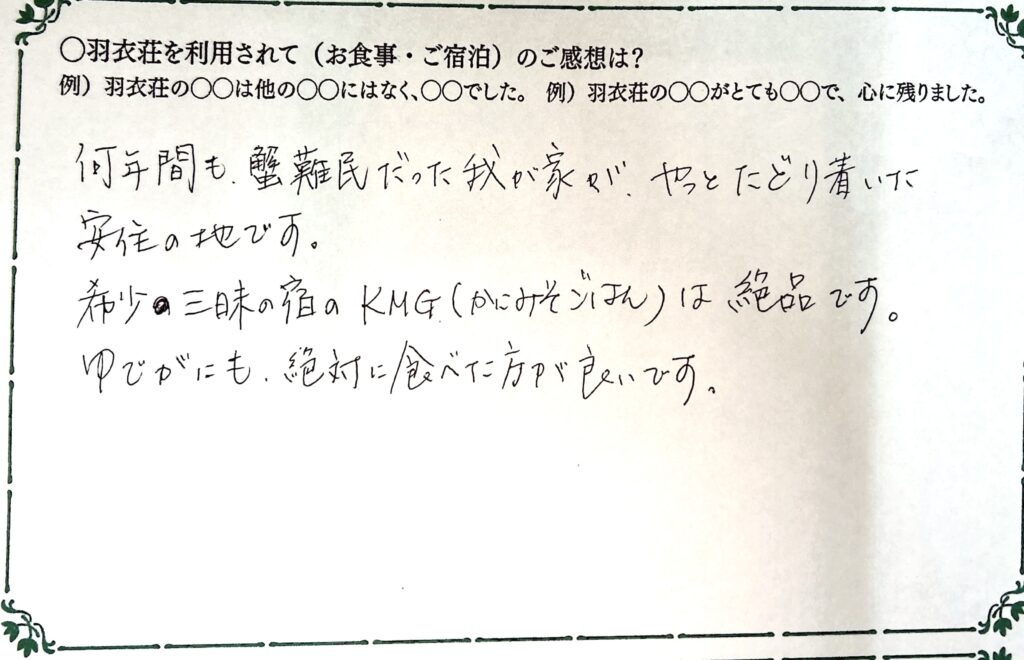 〇羽衣荘を利用されて（お食事・ご宿泊）のご感想は？
例）羽衣荘の〇〇は他の〇〇にはなく、〇〇でした。 例）羽衣荘の〇〇がとても〇〇で、心に残りました。
何年間も、蟹難民だった我が家が、やっとたどり着いた
安住の地です。
希少・三昧の宿のKMG（かにみそごはん）は絶品です。
ゆでがにも、絶対に食べた方が良いです。